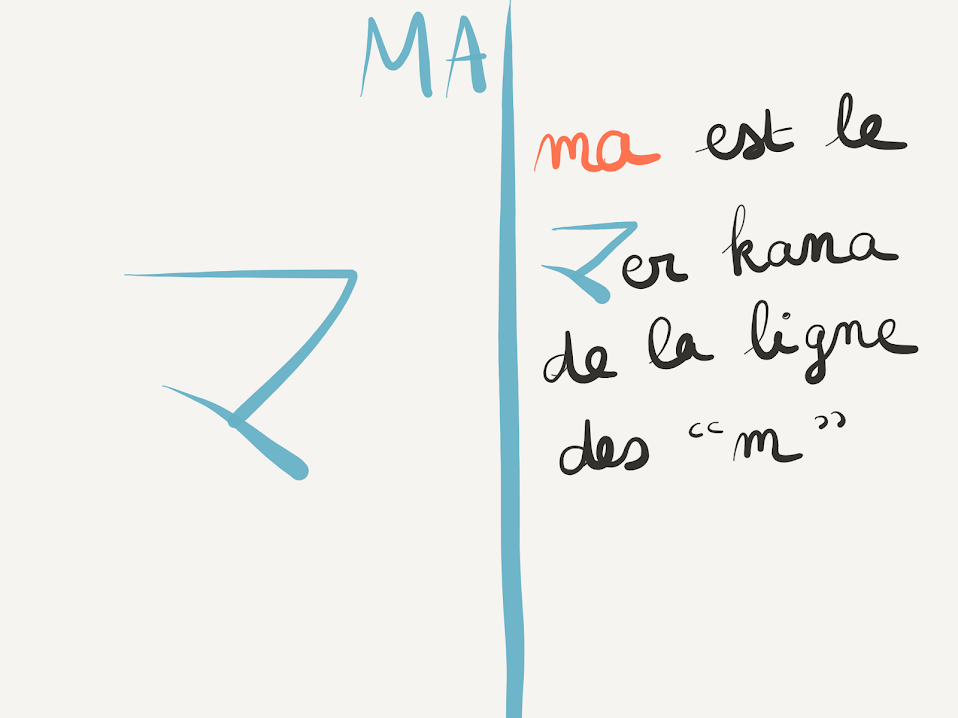 MA
マ
ma est le
マer kana
de la ligne
des “m”